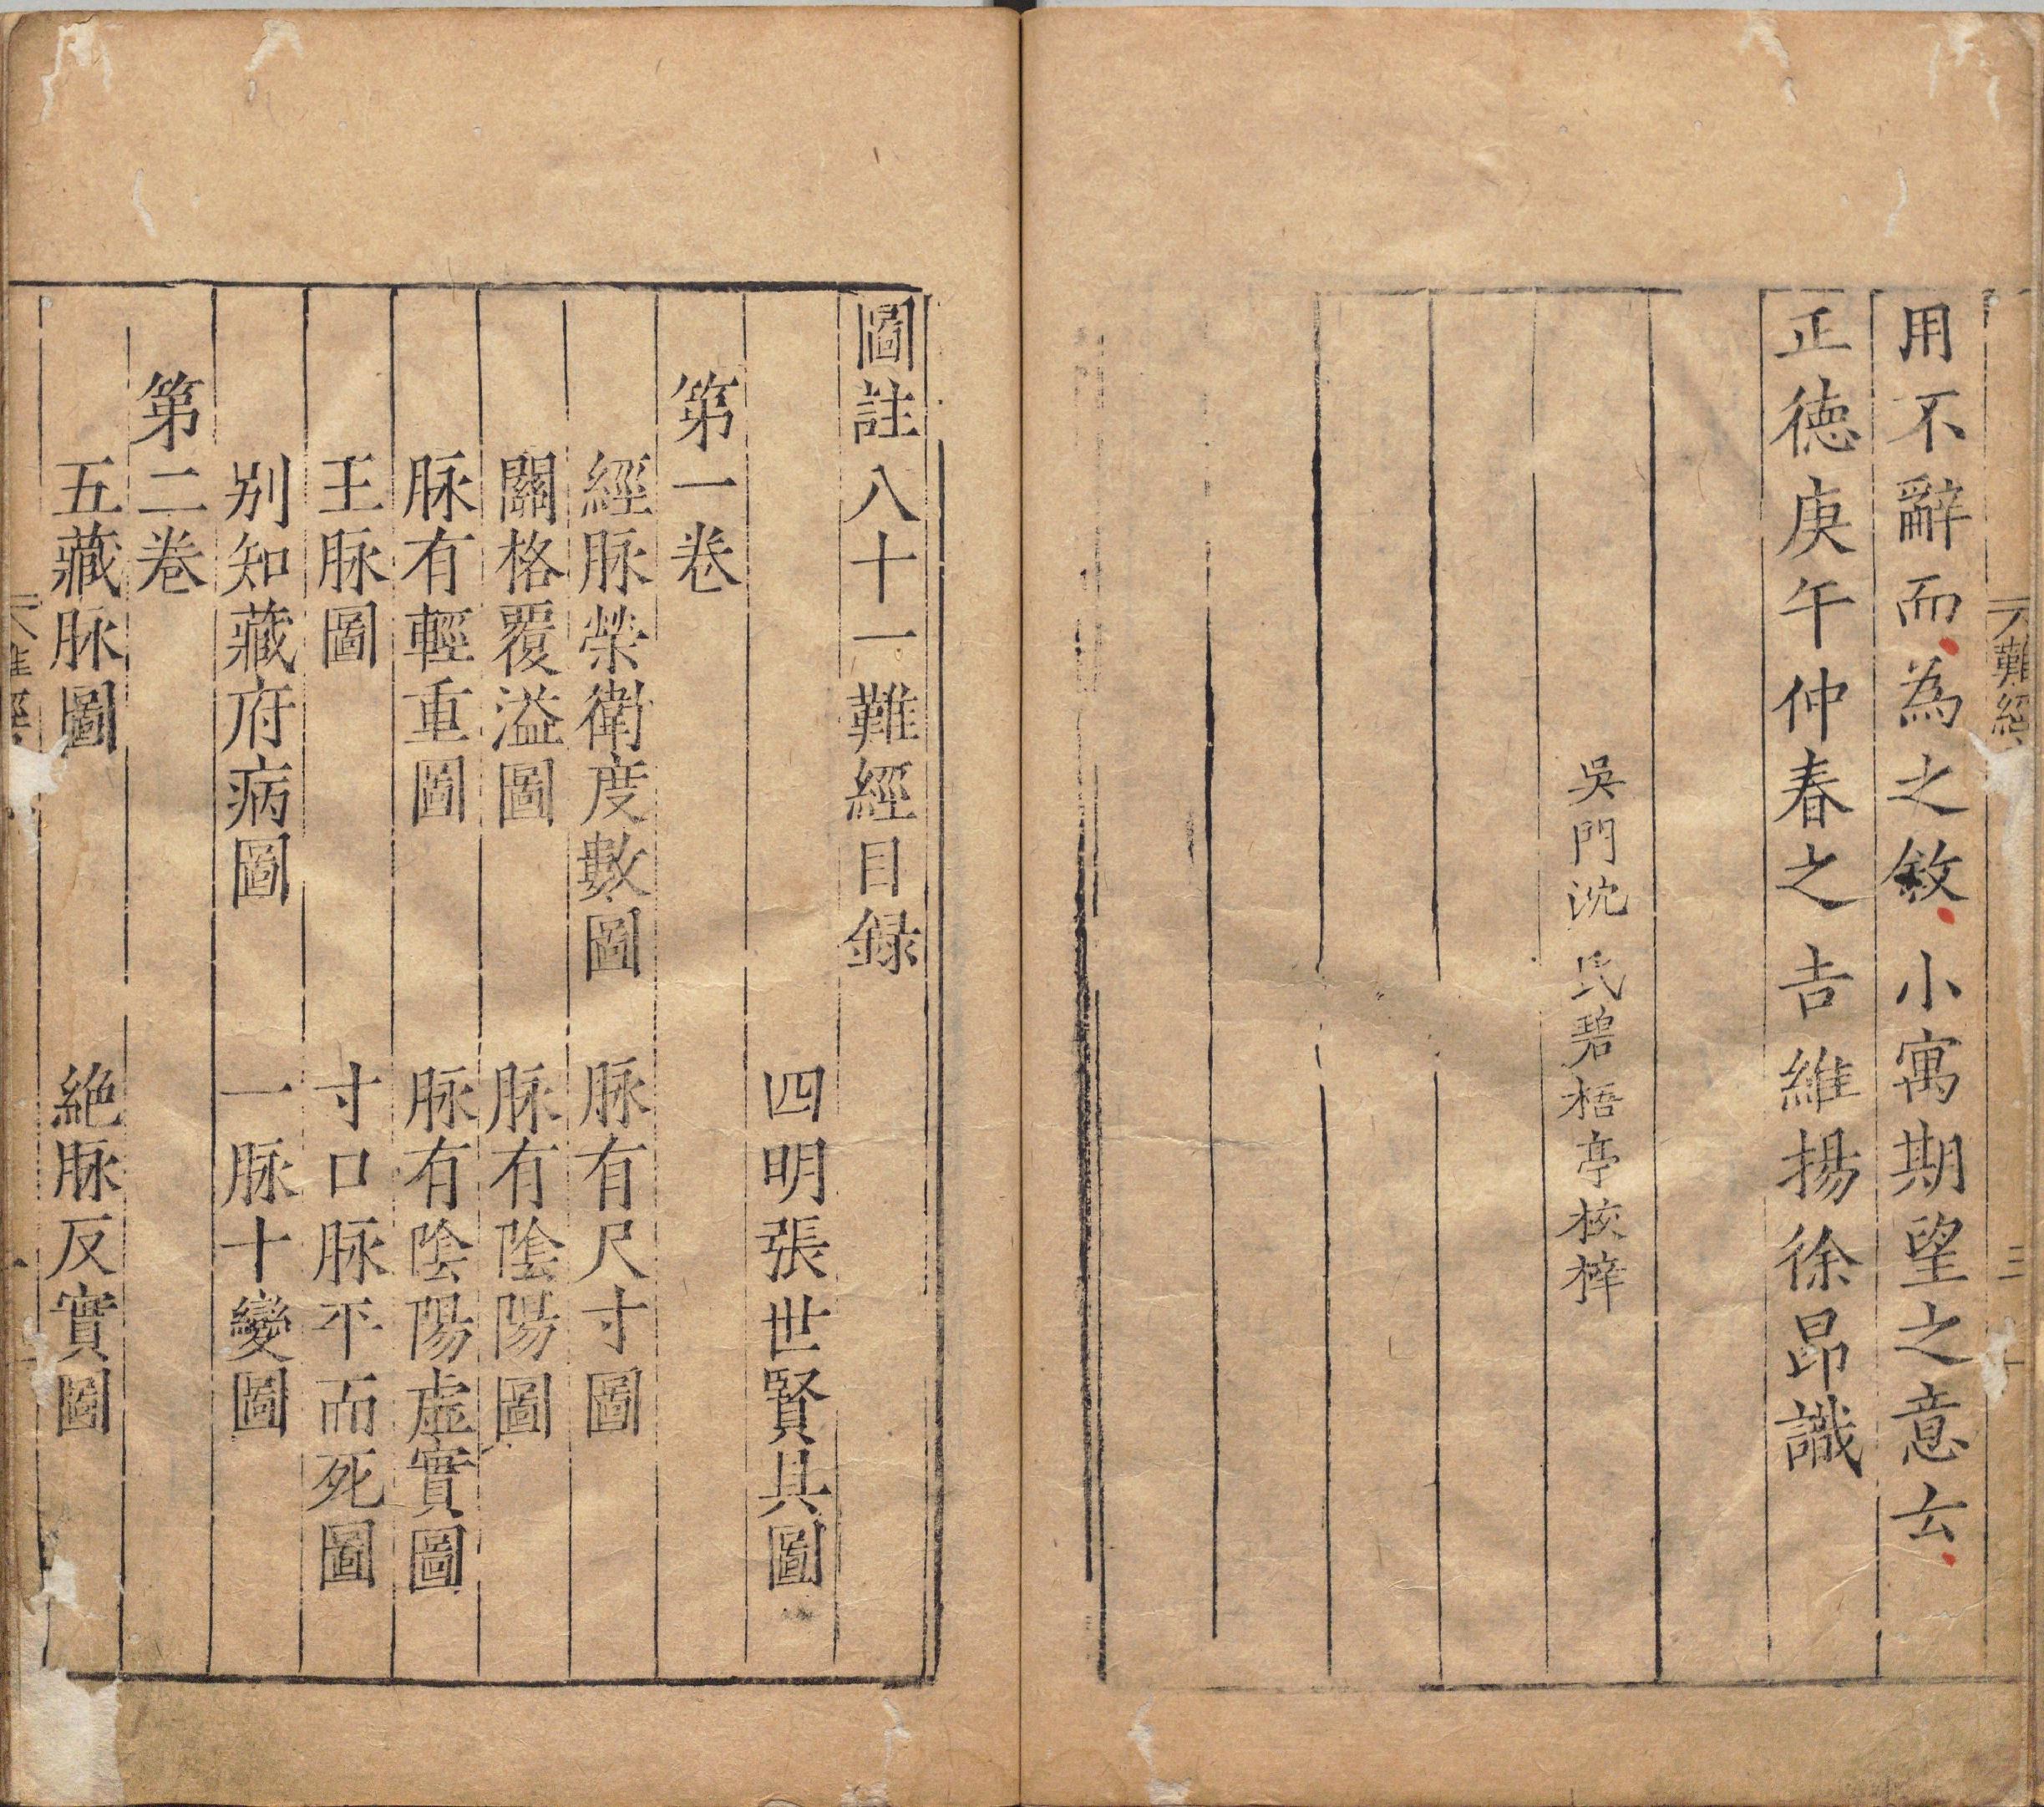 難經
用不辭而為之敘小寓期望之意云
正德庚午仲春之吉維揚徐昂識
吳門沈氏碧梧亭校梓
三
圖註八十一難經目録
四明張世賢具圖
第一卷
經脉榮衛度數圖　脉有尺寸圖
關格覆溢圖　脉有陰陽圖
脉有輕重圖　脉有陰陽虛實圖
王脉圖　寸口脉平而死圖
别知藏府病圖　一脉十變圖
第二卷
五藏脉圖　絶脉反實圖